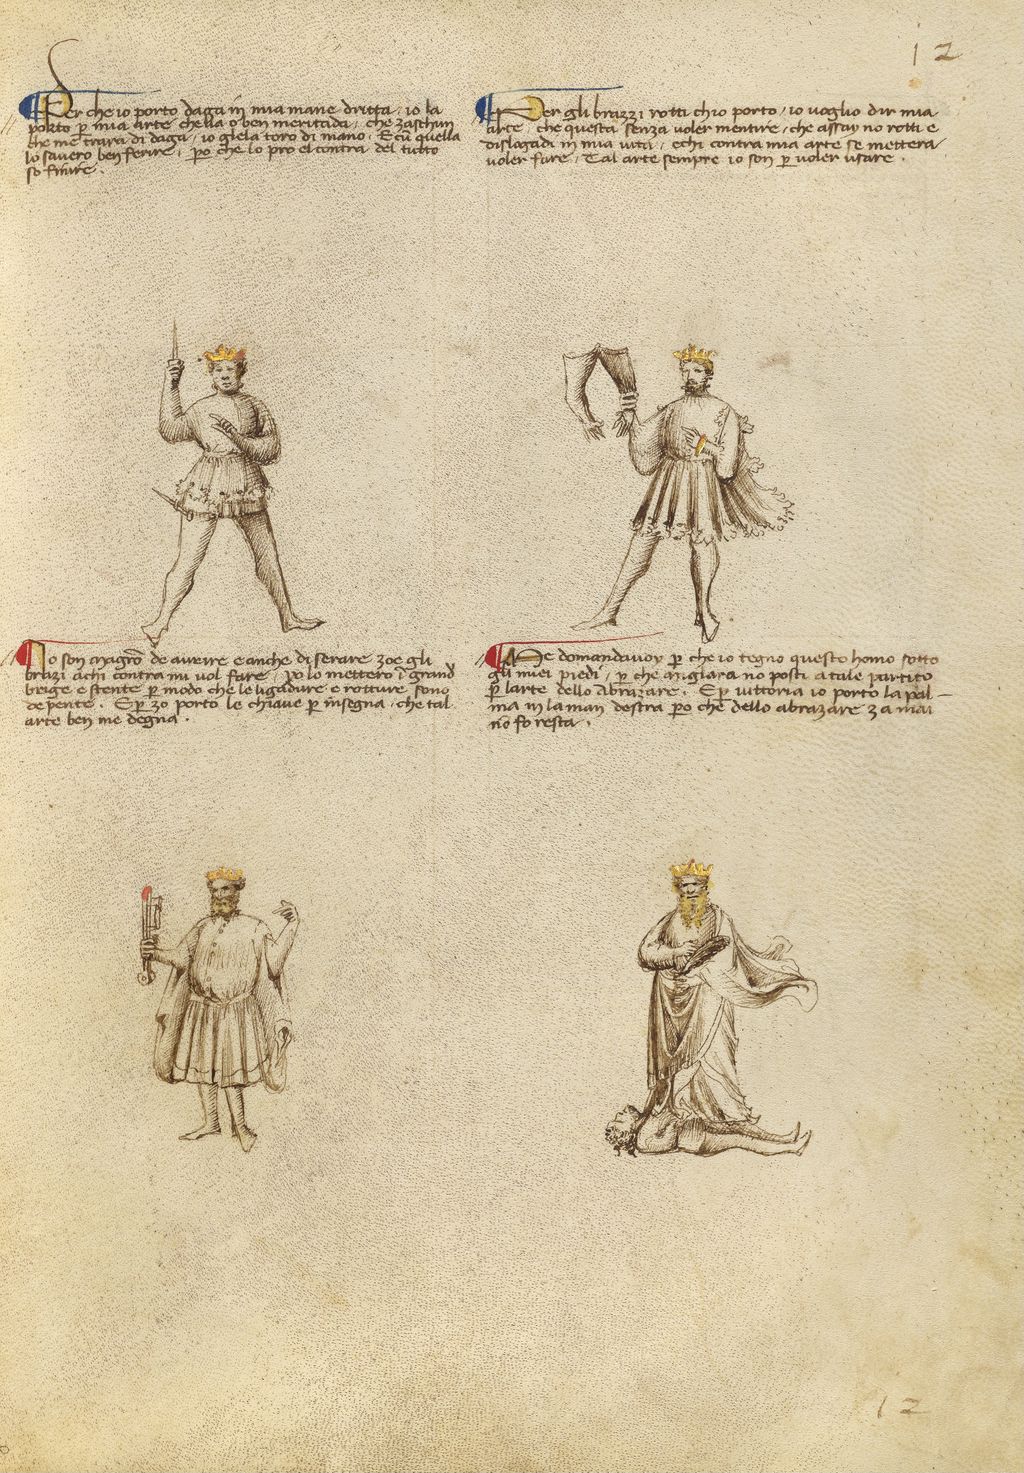 12
Per che io porto daga in mia mane dritta, io la
porto p mia arte, chella o ben meritada, che zaschun
che me trara di daga, io gliela toro di mano, E cū quella
lo savero ben ferire, po che lo pro el contra del tutto
so finire.
Per gli brazzi rotti ch'io porto, io voglio dir mia
arte, che questa senza voler mentire, che assay no rotti e
dislogadi in mia vita, e chi contra mia arte se mettera
voler fare, Tal arte sempre io son p voler usare.
Io son magrō de avrire e anche di serare zoe gli
brazi a chi contra mi vol fare, po lo mettero ī grand
brige e stente p modo che le ligadure e rotture sono
depente. E p zo porto le chiave p insegna, che tal
arte ben me degna.
Me domandavoy p che io tegno questo homo sotto
gli miei piedi, p che migliara no posti a tale partito
p larte dello Abrazare. E p vittoria io porto la pal-
ma in la man destra po che dello abrazare za mai
nō fo resta.
12